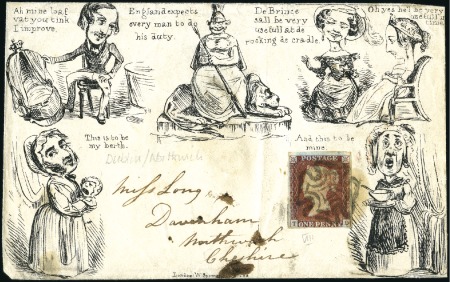 Ah mine loaf
vat you tink
I improve.
England expects
every man to do
his duty.
De Brince
sall be very
usefull at de
rocking de cradle.
Oh yes he'l be very
usefull in
time
This is to be
my berth.
And this to be
mine.
Miss Long
Davenham
Northwich
Cheshire
POSTAGE
ONE PENNY
London